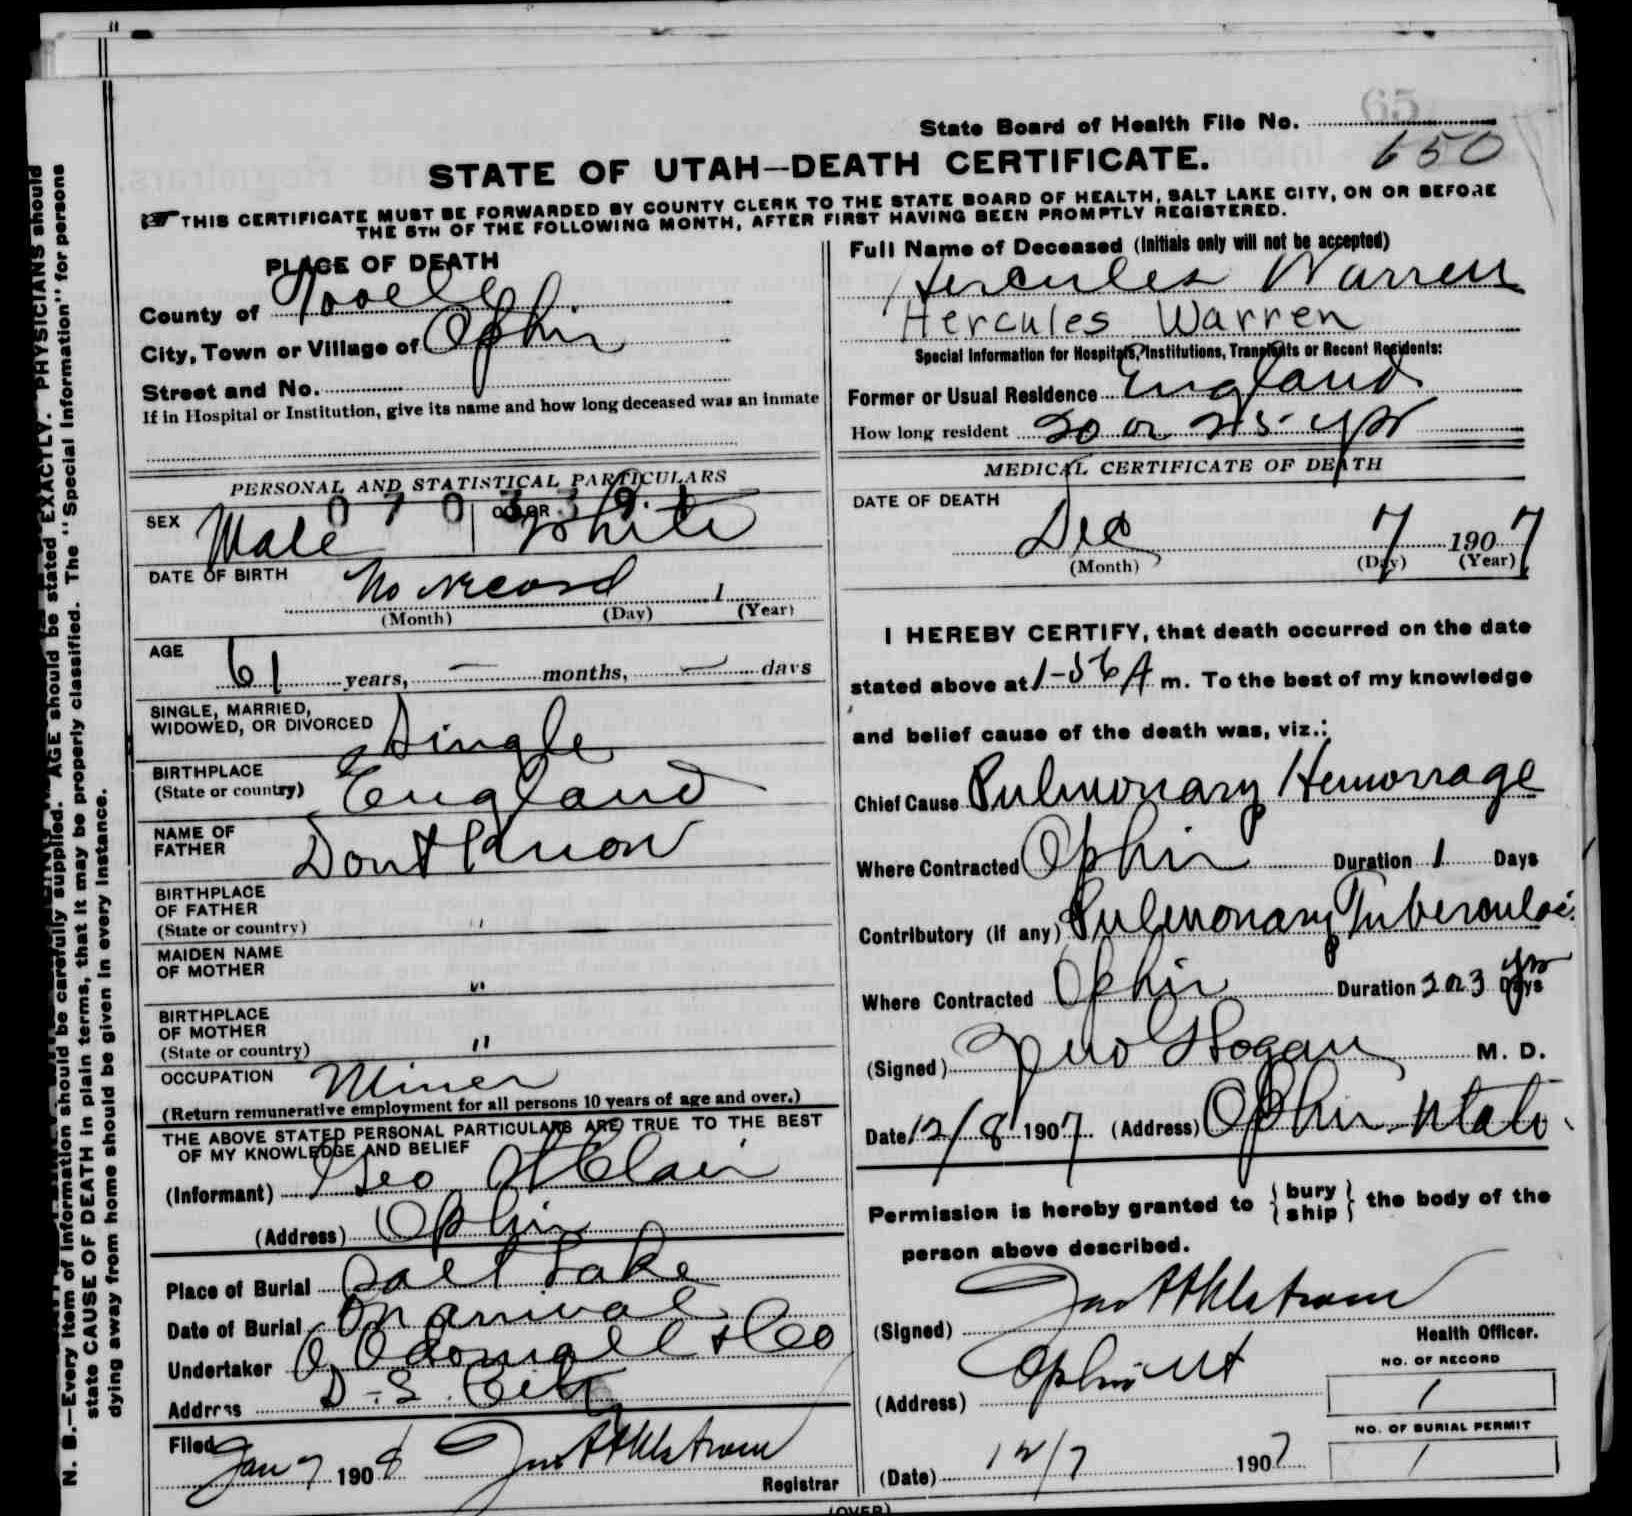 State Board of Health File No. 65
650
STATE OF UTAH—DEATH CERTIFICATE.
THIS CERTIFICATE MUST BE FORWARDED BY COUNTY CLERK TO THE STATE BOARD OF HEALTH, SALT LAKE CITY, ON OR BEFORE
THE 5TH OF THE FOLLOWING MONTH, AFTER FIRST HAVING BEEN PROMPTLY REGISTERED.
PLACE OF DEATH
County of Tooele
City, Town or Village of Ophir
Street and No.
If in Hospital or Institution, give its name and how long deceased was an inmate
PERSONAL AND STATISTICAL PARTICULARS
0 7 0 3 3 9 1
SEX Male COLOR White
DATE OF BIRTH No Record 1
(Month) (Day) (Year)
AGE 61 years, — months, — days
SINGLE, MARRIED,
WIDOWED, OR DIVORCED Single
BIRTHPLACE
(State or country) England
NAME OF
FATHER Dont Know
BIRTHPLACE
OF FATHER
(State or country) "
MAIDEN NAME
OF MOTHER "
BIRTHPLACE
OF MOTHER
(State or country) "
OCCUPATION Miner
(Return remunerative employment for all persons 10 years of age and over.)
THE ABOVE STATED PERSONAL PARTICULARS ARE TRUE TO THE BEST
OF MY KNOWLEDGE AND BELIEF
(Informant) Geo St Clair
(Address) Ophir
Place of Burial Salt Lake
Date of Burial On arrival
Undertaker O Odonnall & Co
Address S. City
Filed Jan 7 1908
Registrar
Full Name of Deceased (Initials only will not be accepted)
Hercules Warren
Hercules Warren
Special Information for Hospitals, Institutions, Transients or Recent Residents:
Former or Usual Residence England
How long resident 20 or 25 yrs
MEDICAL CERTIFICATE OF DEATH
DATE OF DEATH
Dec 7 1907
(Month) (Day) (Year)
I HEREBY CERTIFY, that death occurred on the date
stated above at 1-56 A m. To the best of my knowledge
and belief cause of the death was, viz.:
Chief Cause Pulmonary Hemorrage
Where Contracted Ophir Duration 1 Days
Contributory (if any) Pulmonary Tuberculosis
Where Contracted Ophir Duration 2 or 3 yrs Days
(Signed) Jno Hogan M. D.
Date 12/8 1907 (Address) Ophir Utah.
Permission is hereby granted to { bury ship } the body of the
person above described.
(Signed) Jas Ahlstrom
Health Officer.
(Address) Ophir Ut
NO. OF RECORD
1
NO. OF BURIAL PERMIT
1
(Date) 12/7 1907
(OVER)
N. B.—Every item of information should be carefully supplied. AGE should be stated EXACTLY. PHYSICIANS should
state CAUSE OF DEATH in plain terms, that it may be properly classified. The "Special Information" for persons
dying away from home should be given in every instance.